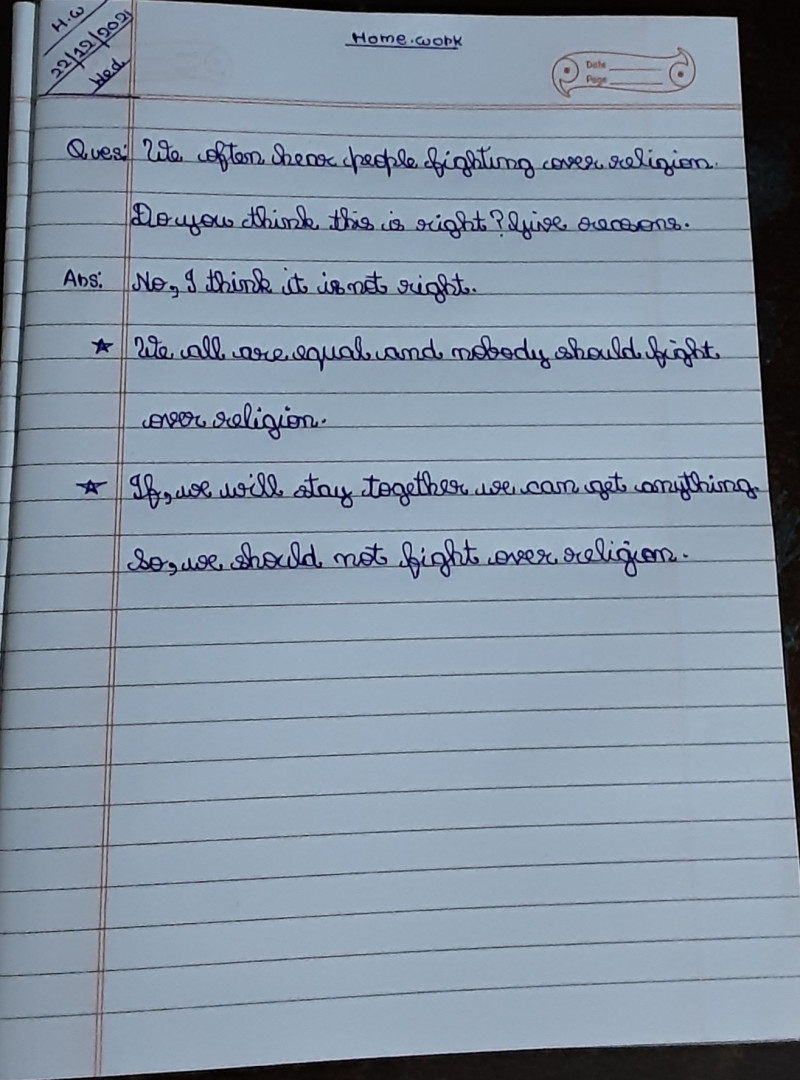 H.W
22/12/2021
Wed
Home.work
Date
Page
Ques: We often hear people fighting over religion.
Do you think this is right? Give reasons.
Ans: No, I think it is not right.
★ We all are equal and nobody should fight
over religion.
★ If, we will stay together we can get anything.
So, we should not fight over religion.